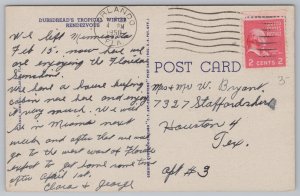 DURSHRAD'S TROPICAL WINTER
RENDEZVOUS
ORLANDO
4 PM
195
FLA.
2 CENTS 2
We left Minnesota
Feb 15. now here we
are enjoying the Florida
Sunshine.
We have a house keeping
cabin near here and enjoy
it very much. We will
be in Miami next
week and after that we will
go to the west coast of Florida
expect to get home some time
after April 1st.
Clara & George
POST CARD
Mr & Mrs W. Bryant,
7327 Staffordshire
Houston 4
Tex.
apt #3
3-